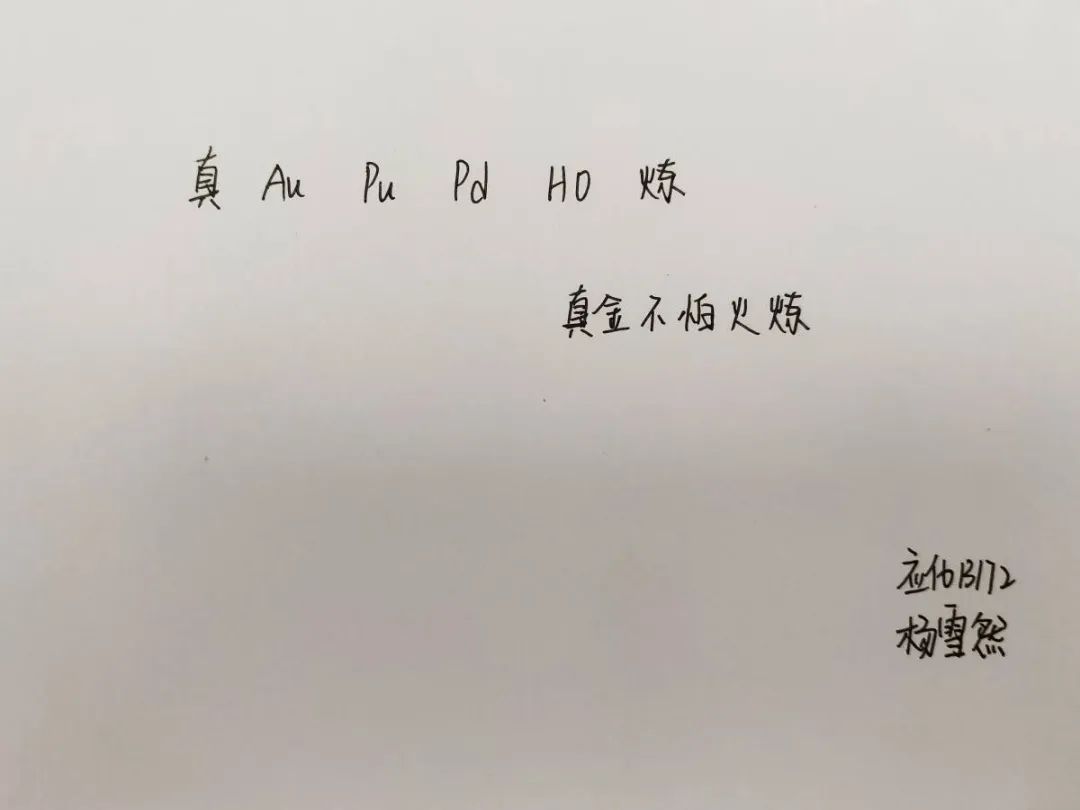 真 Au Pu Pd HO 炼
真金不怕火炼
应化B172
杨雪然